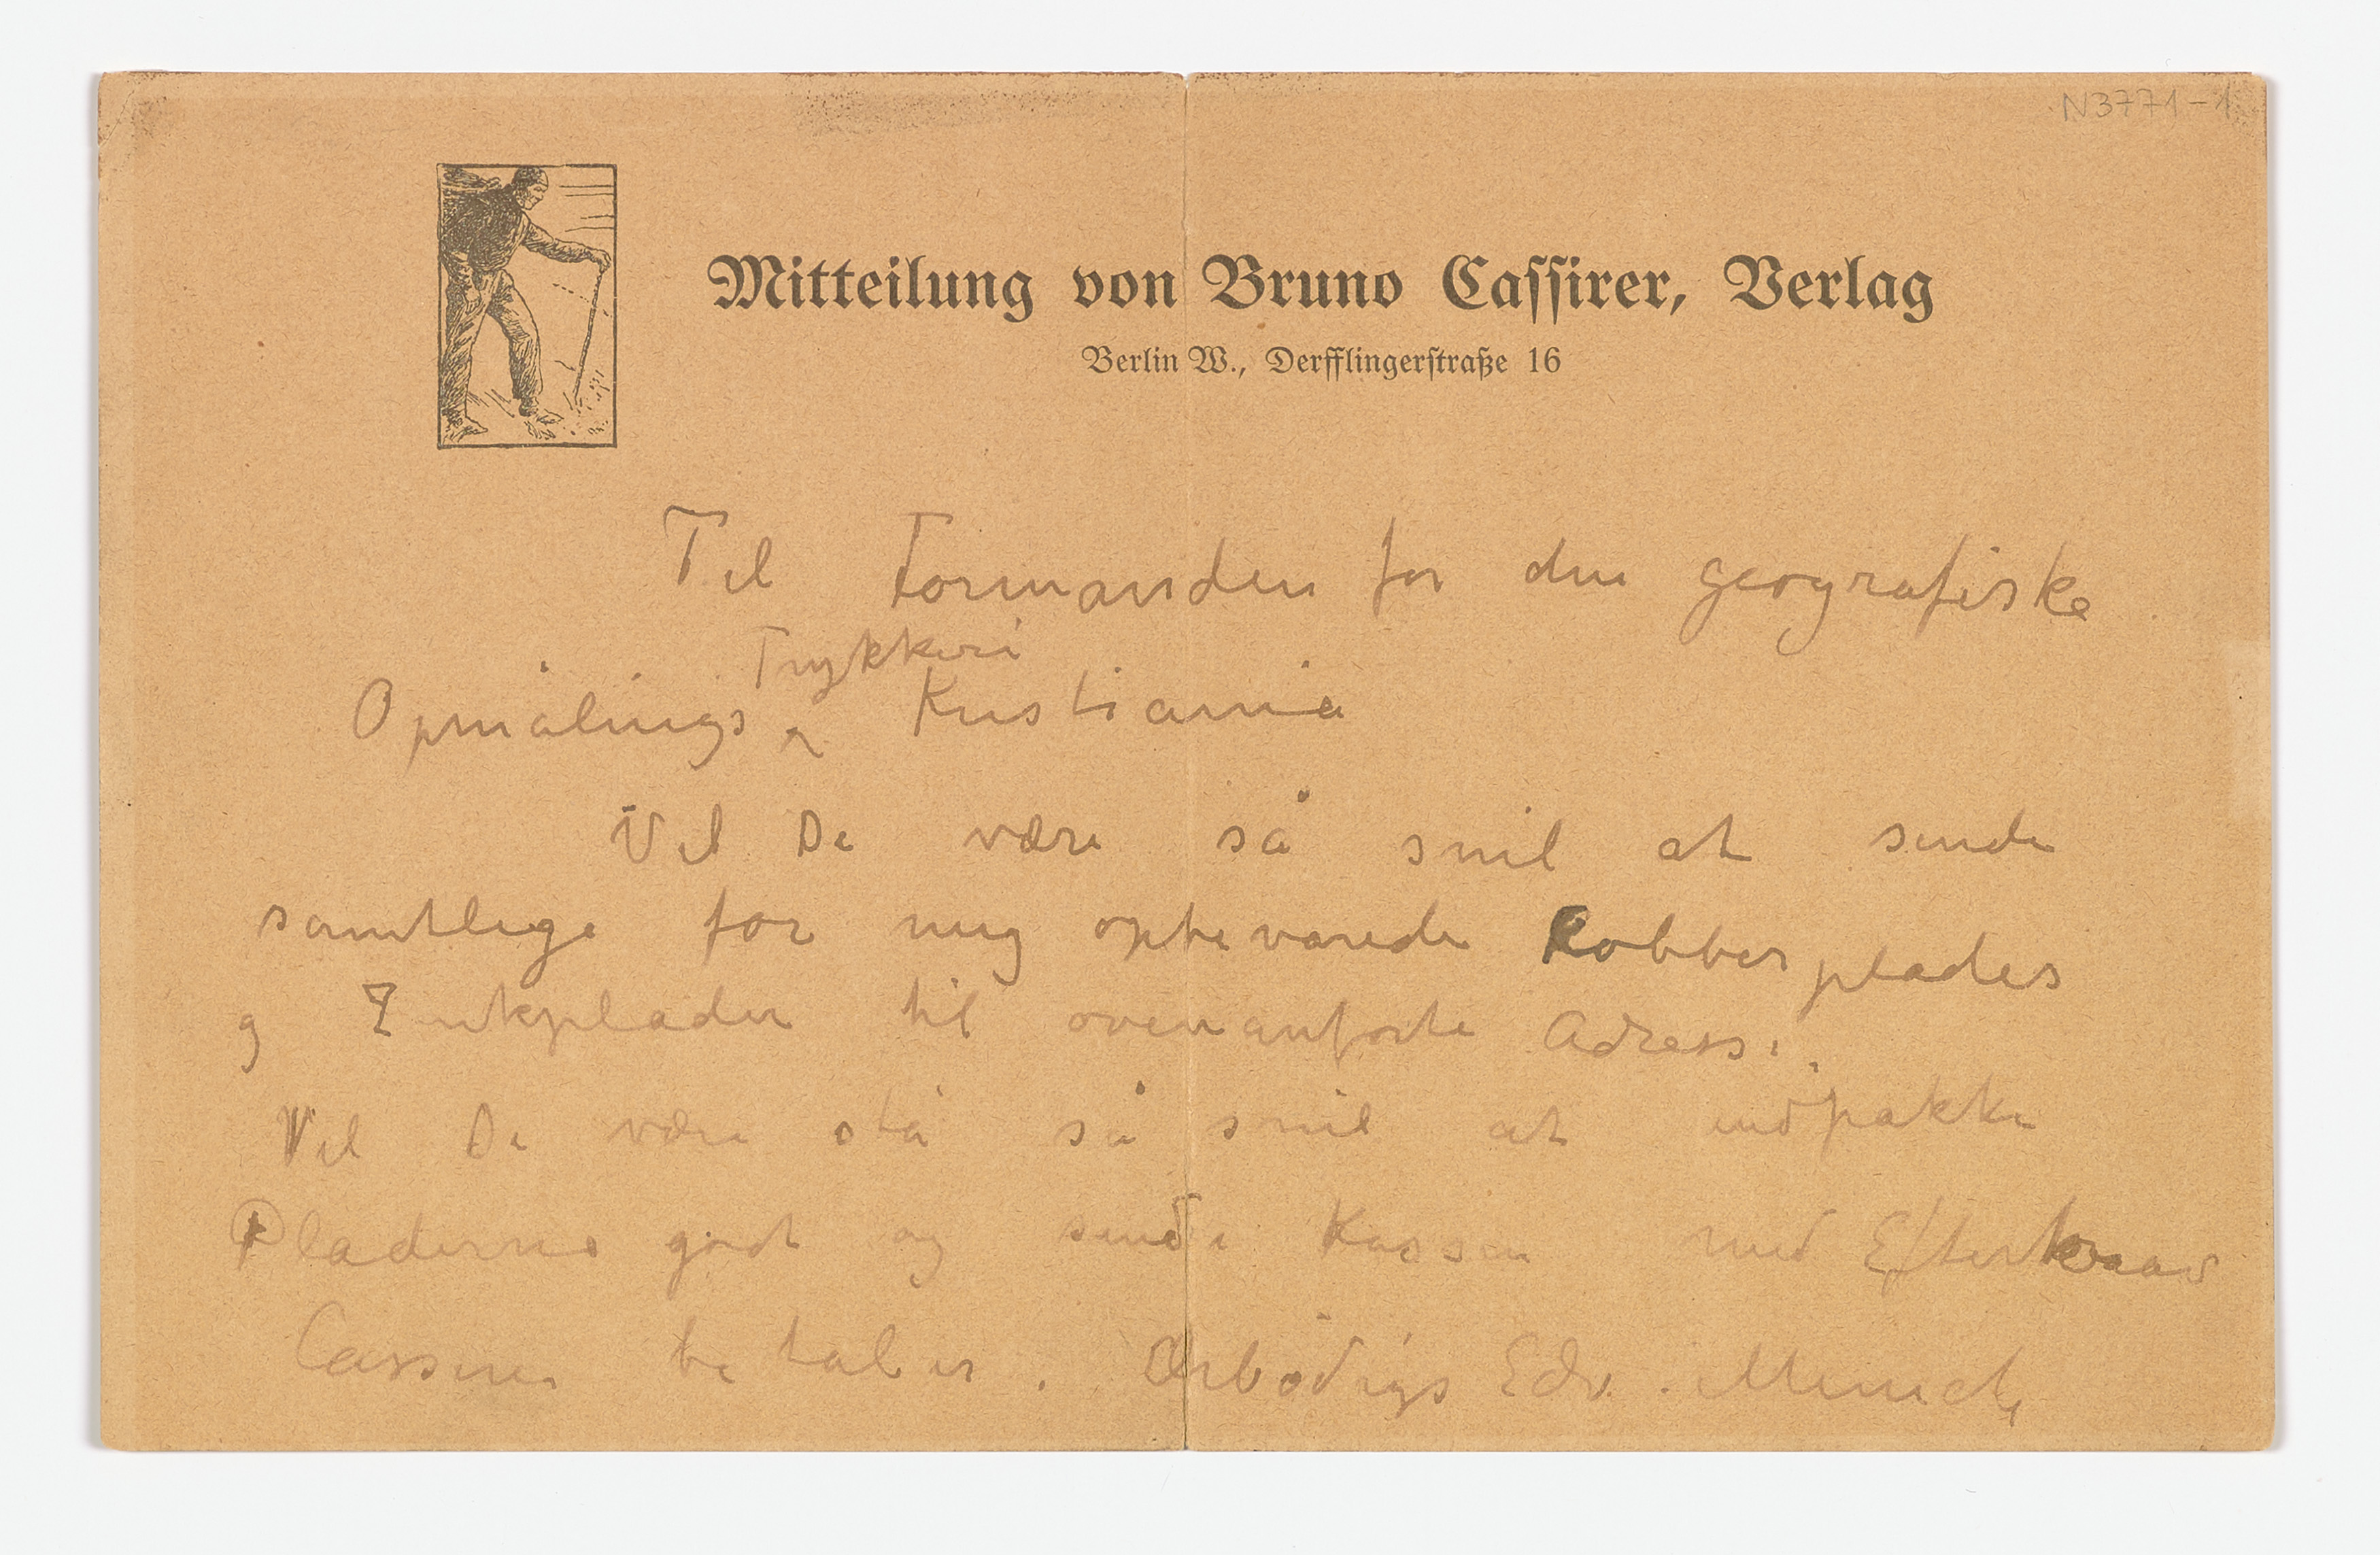 N3771-1
Mitteilung von Bruno Cassirer, Verlag
Berlin W., Derfflingerstraße 16
Til Formanden for den geografiske
Trykkeri
Opmålings Kristiania
Vil De være så snil at sende
samtlige for mig opbevarede Kobberplader
og Zinkplader til ovenanførte Adresse.
Vil De være så snil at indpakke
Pladerne godt og sende Kassen med Efterkrav
Cassirer betaler. Ærbødigs Edv. Munch